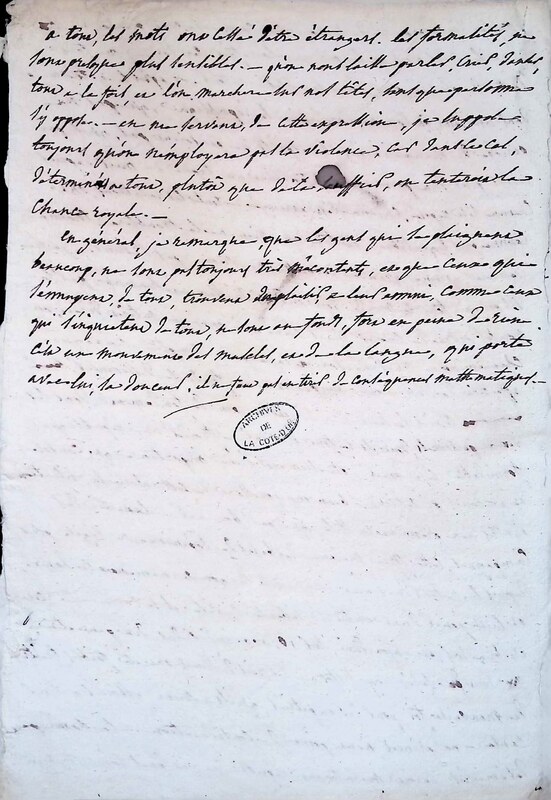 a tout, les mots ont cessé d'être étrangers. les formalités, ne
sont presque plus sensibles. — qu'on nous laisse parler, crier,
tout se fait et l'on marchera sur nos têtes, sans que personne
s'y oppose. — en me servant, de cette expression, je suppose
toujours qu'on n'employera pas la violence, car dans le cas,
déterminés a tout, plutôt que de la souffrir, on tenteroit la
chance royale. —
En général, je remarque, que les gens qui se plaignent
beaucoup, ne sont pas toujours très mécontents, et que ceux qui
s'ennuyent, de tout, trouvent des plaisirs a leur ennui, comme ceux
qui s'inquietent de tout, ne sont au fond, fort en peine de rien
c'est un mouvement des muscles, et de la langue, qui porte
avec lui, sa douceur, il n'en faut pas tirer de conséquences mathématiques. —
ARCHIVES
DE
LA CÔTE-D'OR